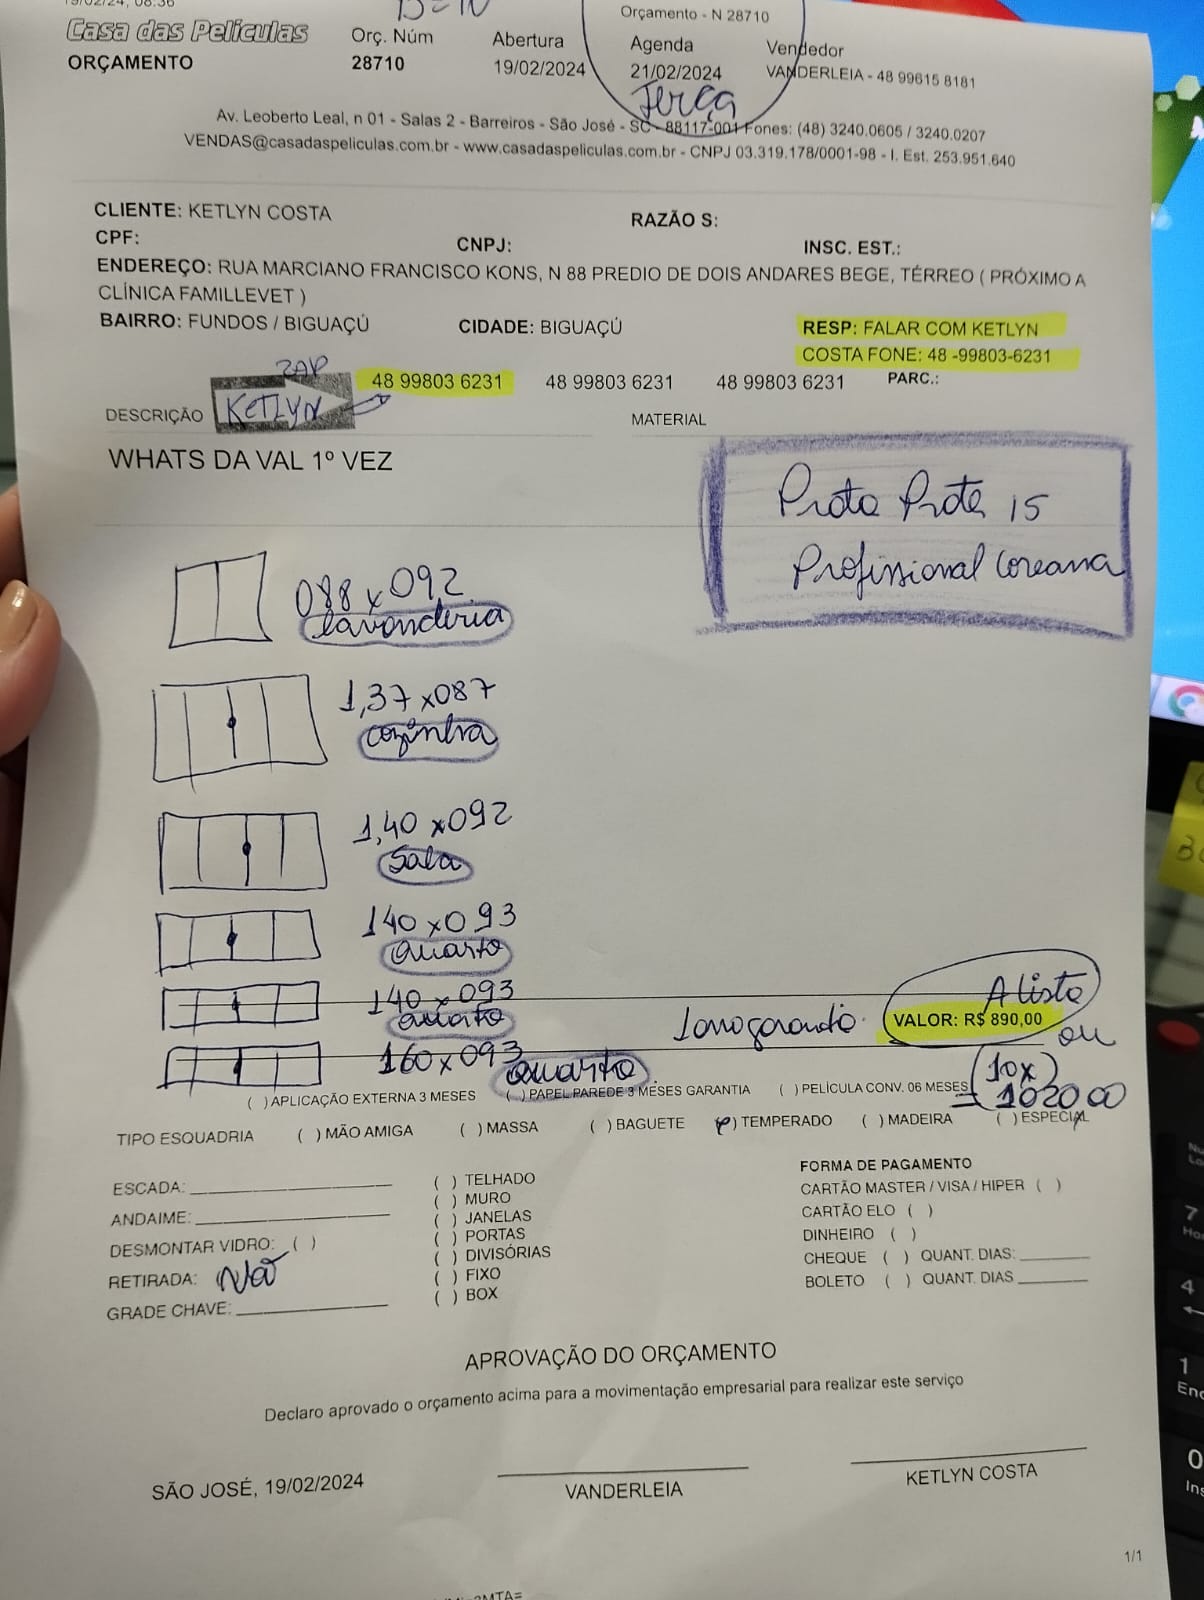 19/02/24, 08:36
Orçamento - N 28710
Casa das Películas
Orç. Núm
Abertura
Agenda
Vendedor
ORÇAMENTO
28710
19/02/2024
21/02/2024
VANDERLEIA - 48 99615 8181
Terça
Av. Leoberto Leal, n 01 - Salas 2 - Barreiros - São José - SC - 88117-001 Fones: (48) 3240.0605 / 3240.0207
VENDAS@casadaspeliculas.com.br - www.casadaspeliculas.com.br - CNPJ 03.319.178/0001-98 - I. Est. 253.951.640
CLIENTE: KETLYN COSTA
RAZÃO S:
CPF:
CNPJ:
INSC. EST.:
ENDEREÇO: RUA MARCIANO FRANCISCO KONS, N 88 PREDIO DE DOIS ANDARES BEGE, TÉRREO ( PRÓXIMO A
CLÍNICA FAMILLEVET )
BAIRRO: FUNDOS / BIGUAÇÚ
CIDADE: BIGUAÇÚ
RESP: FALAR COM KETLYN
COSTA FONE: 48 -99803-6231
ZAP
48 99803 6231
48 99803 6231
48 99803 6231
PARC.:
DESCRIÇÃO
KETLYN
MATERIAL
WHATS DA VAL 1º VEZ
Prata Prata 15
Profissional Coreana
088 x 092
lavanderia
1,37 x 087
cozinha
1,40 x 092
Sala
140 x 093
Quarto
140 x 093
Quarto
160 x 093
Quarto
A lista
VALOR: R$ 890,00
ou
10x
= 1020 00
( ) APLICAÇÃO EXTERNA 3 MESES
( ) PAPEL PAREDE 3 MESES GARANTIA
( ) PELÍCULA CONV. 06 MESES
TIPO ESQUADRIA
( ) MÃO AMIGA
( ) MASSA
( ) BAGUETE
( ) TEMPERADO
( ) MADEIRA
( ) ESPECIAL
ESCADA:
ANDAIME:
DESMONTAR VIDRO: ( )
RETIRADA: Não
GRADE CHAVE:
( ) TELHADO
( ) MURO
( ) JANELAS
( ) PORTAS
( ) DIVISÓRIAS
( ) FIXO
( ) BOX
FORMA DE PAGAMENTO
CARTÃO MASTER / VISA / HIPER ( )
CARTÃO ELO ( )
DINHEIRO ( )
CHEQUE ( ) QUANT. DIAS:
BOLETO ( ) QUANT. DIAS
APROVAÇÃO DO ORÇAMENTO
Declaro aprovado o orçamento acima para a movimentação empresarial para realizar este serviço
SÃO JOSÉ, 19/02/2024
VANDERLEIA
KETLYN COSTA
1/1